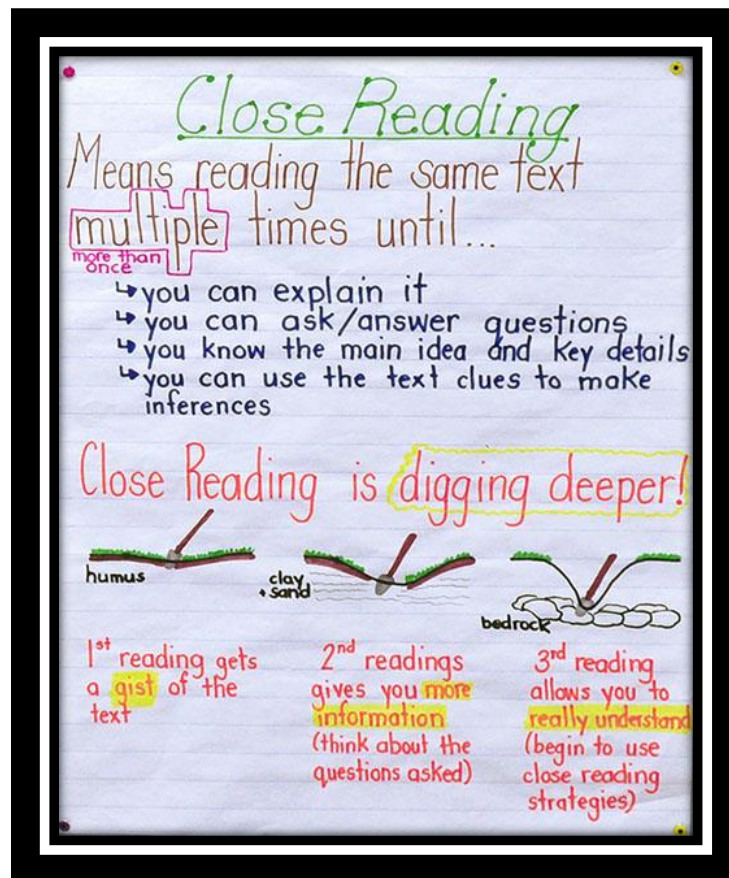 Close Reading
Means reading the same text
multiple times until...
more than
once
↳you can explain it
↳you can ask/answer questions
↳you know the main idea and key details
↳you can use the text clues to make
inferences
Close Reading is digging deeper!
humus
clay
+ sand
bedrock
1st reading gets
a gist of the
text
2nd readings
gives you more
information
(think about the
questions asked)
3rd reading
allows you to
really understand
(begin to use
close reading
strategies)